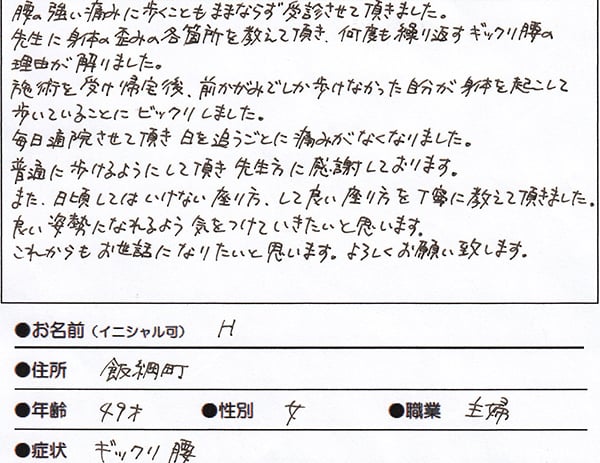 腰の強い痛みに歩くこともままならず受診させて頂きました。
先生に身体の歪みの各箇所を教えて頂き、何度も繰り返すギックリ腰の
理由が解りました。
施術を受け帰宅後、前かがみでしか歩けなかった自分が身体を起こして
歩いていることにビックリしました。
毎日通院させて頂き日を追うごとに痛みがなくなりました。
普通に歩けるようにして頂き先生方に感謝しております。
また、日頃してはいけない座り方、して良い座り方を丁寧に教えて頂きました。
良い姿勢になれるよう気をつけていきたいと思います。
これからもお世話になりたいと思います。よろしくお願い致します。
●お名前(イニシャル可) H
●住所 飯綱町
●年齢 49才 ●性別 女 ●職業 主婦
●症状 ギックリ腰